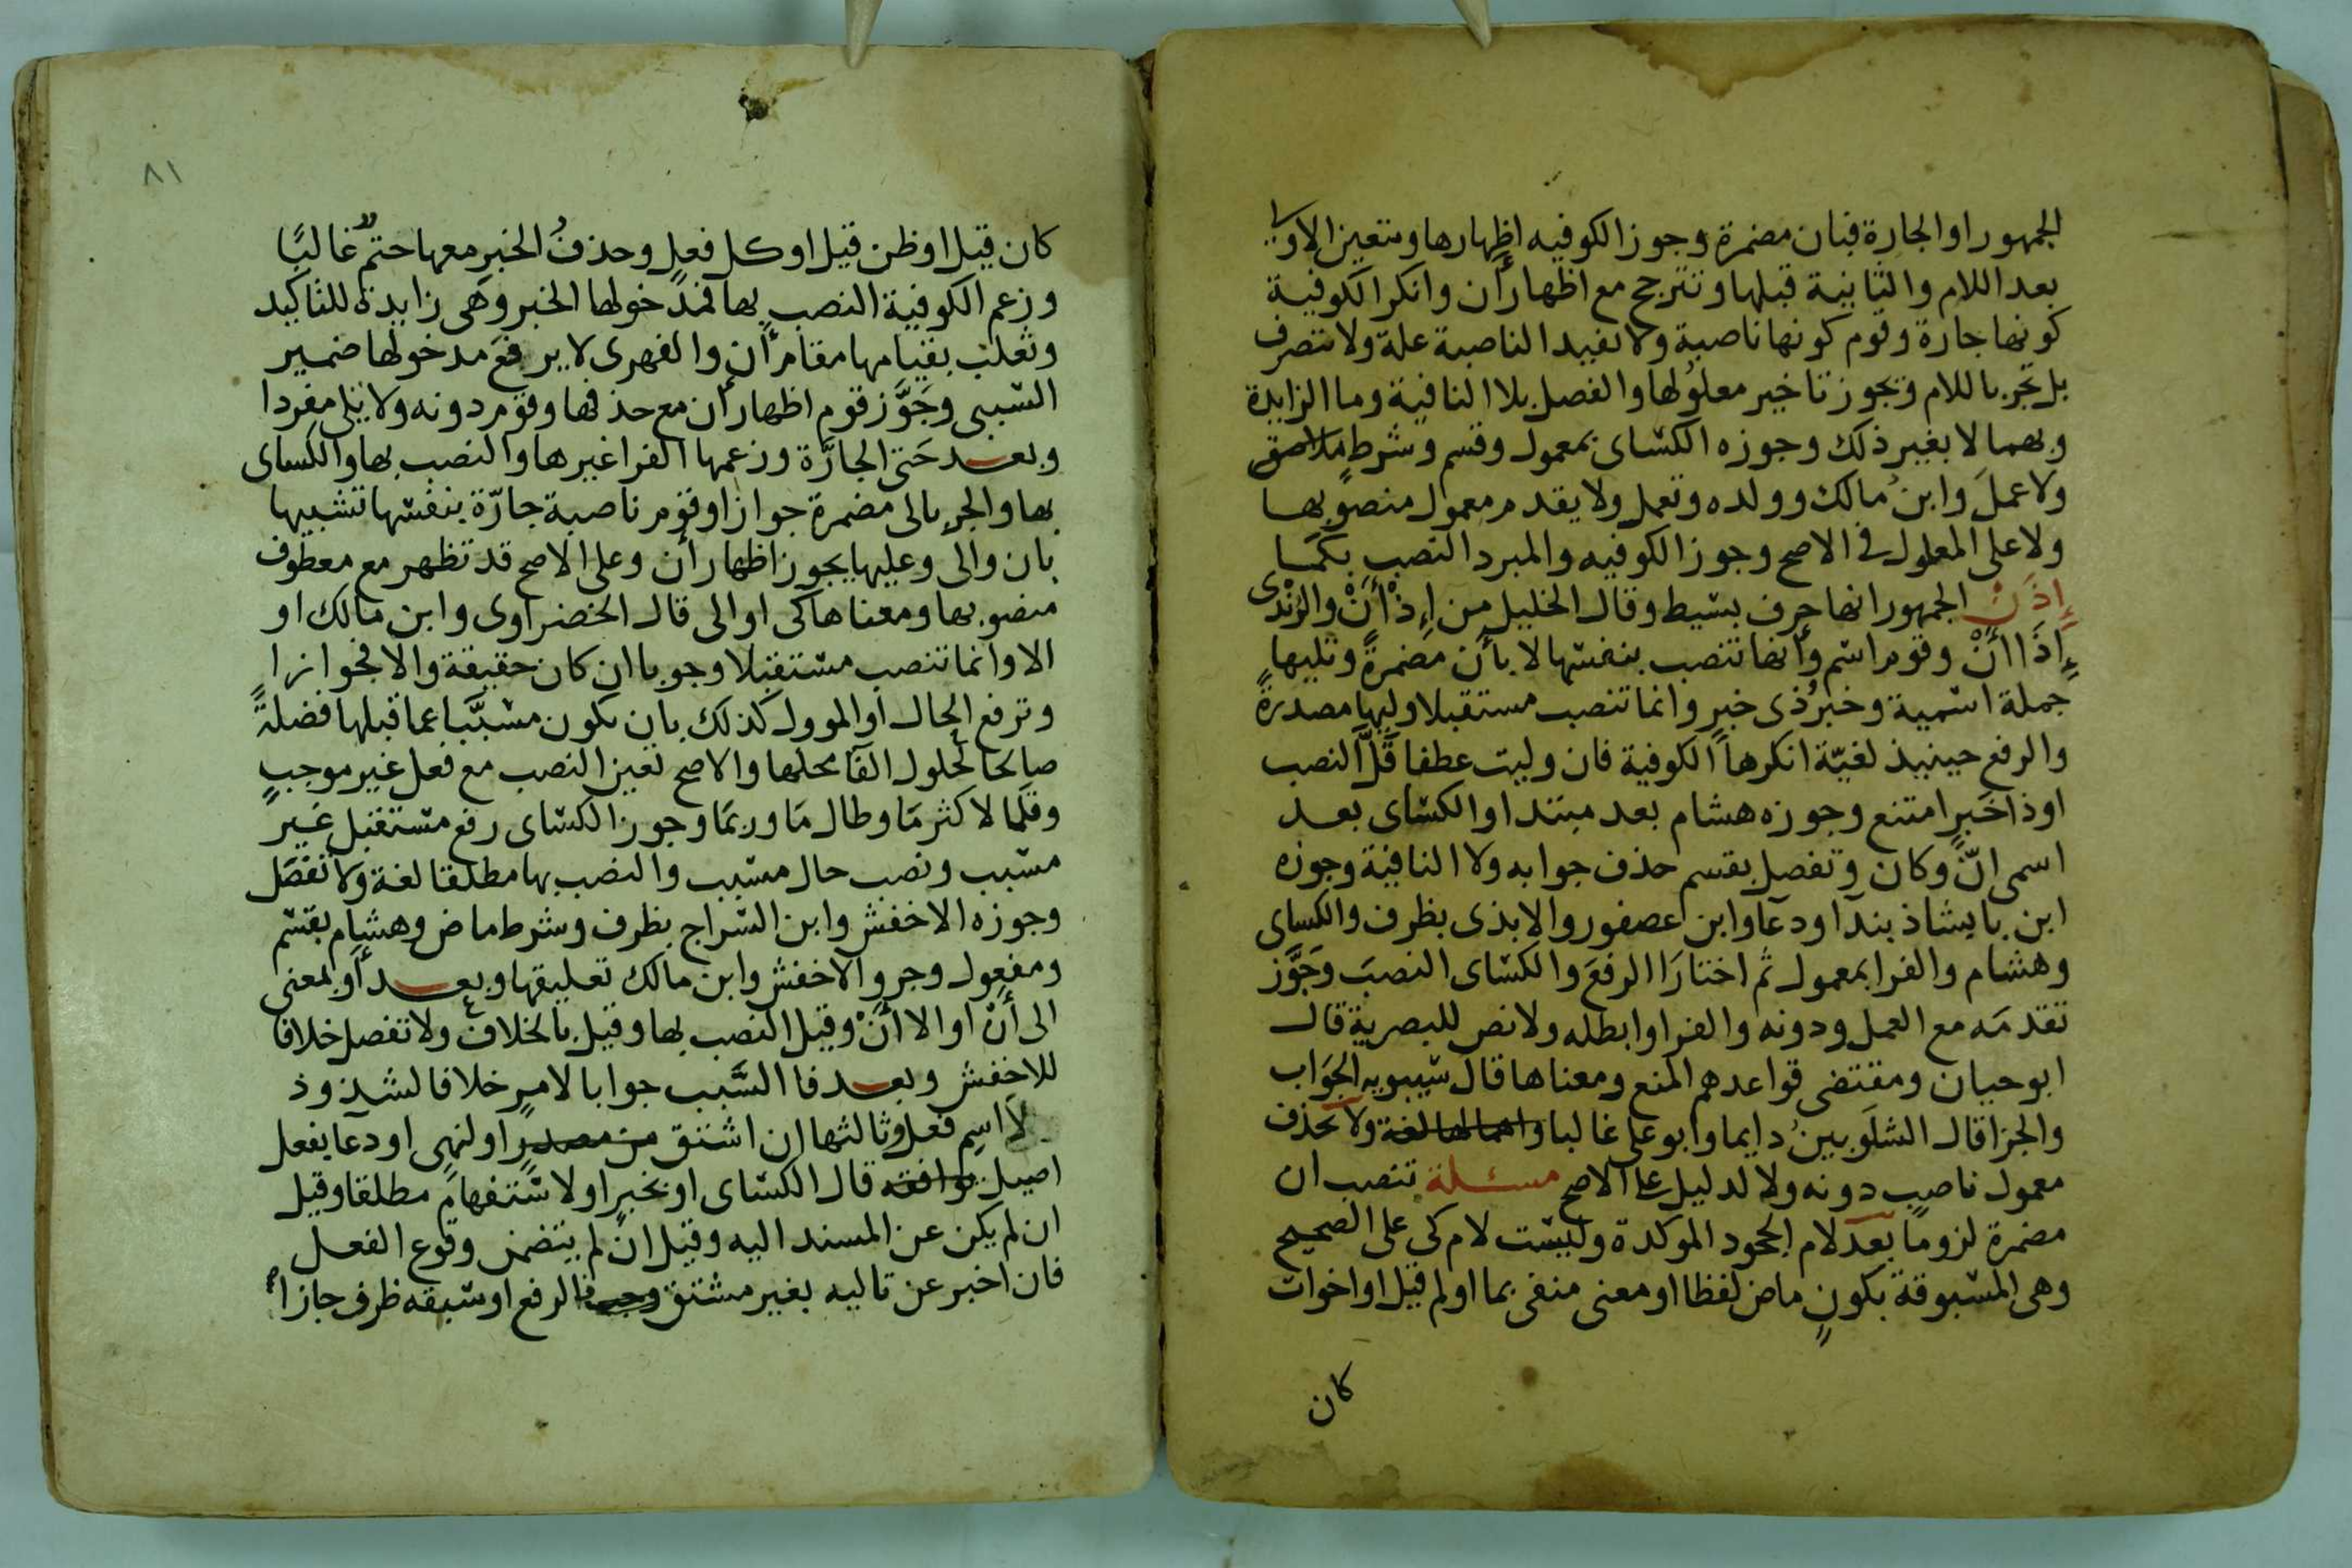 الجمهور او الجارة فبان مضمرة وجوز الكوفيه اظهارها وتتعين الاولى
بعد اللام والثانية قبلها وتترجح مع اظهار أن وانكر الكوفية
كونها جارة وقوم كونها ناصبة ولا تفيد الناصبة علة ولا تتصرف
بل تجر باللام ويجوز تاخير معلولها والفصل بلا النافية وما الزايدة
وبهما لا بغير ذلك وجوزه الكسائ بمعمول وقسم وشرط ملاصق
ولا عمل وابن مالك وولده وتعمل ولا يقدم معمول منصوبها
ولا على المعلول في الاصح وجوز الكوفيه والمبرد النصب بكما
إذن الجمهور انها حرف بسيط وقال الخليل من إذ أن والرندى
إذا أن وقوم اسم وأنها تنصب بنفسها لا بأن مضمرة وتليها
جملة اسمية وخبر ذى خبر وانما تنصب مستقبلا وليها مصدرة
والرفع حينيذ لغيّة انكرها الكوفية فان وليت عطفا قلّ النصب
او ذا خبر امتنع وجوزه هشام بعد مبتدا والكسائ بعد
اسمى انّ وكان وتفصل بقسم حذف جوابه ولا النافية وجوزه
ابن بابشاذ بندآ ودعآ وابن عصفور والابذى بظرف والكسائ
وهشام والفرا بمعمول ثم اختارا الرفع والكسائ النصب وجوّز
تقدمه مع العمل ودونه والفرا وابطله ولا نص للبصرية قال
ابو حيان ومقتضى قواعدهم المنع ومعناها قال سيبويه الجواب
والجزا قال الشلوبين دايما وابو على غالبا واهمالها لغة ولا تحذف
معمول ناصب دونه ولا لدليل على الاصح مسئلة تنصب ان
مضمرة لزوما بعد لام الجحود الموكدة وليست لام كى على الصحيح
وهى المسبوقة بكون ماض لفظا او معنى منفى بما او لم قيل او اخوات
كان
٨١
كان قيل او ظن قيل او كل فعل وحذف الخبر معها حتم غالبًا
وزعم الكوفية النصب بها فمدخولها الخبر وهى زايدة للتاكيد
وثعلب بقيامها مقام أن والفهرى لا يرفع مدخولها ضمير
السببى وجوّز قوم اظهار أن مع حذفها وقوم دونه ولا يلى مفردا
وبعد حتى الجارّة وزعمها الفرا غيرها والنصب بها والكسائ
بها والجر بالى مضمرة جوازا وقوم ناصبة جارّة بنفسها تشبيها
بان والى وعليها يجوز اظهار أن وعلى الاصح قد تظهر مع معطوف
منصوبها ومعناها كى او الى قال الخضراوى وابن مالك او
الا وانما تنصب مستقبلا وجوبا ان كان حقيقة والا فجوازا
وترفع الحال او الموول كذلك بان يكون مسبّبا عما قبلها فضلة
صالحا لحلول الفآ محلها والاصح تعين النصب مع فعل غير موجب
وقلما لا كثر ما وطال ما وربما وجوز الكسائ رفع مستقبل غير
مسبب ونصب حال مسبب والنصب بها مطلقا لغة ولا تفصل
وجوزه الاخفش وابن السراج بظرف وشرط ماض وهشام بقسم
ومفعول وجر والاخفش وابن مالك تعليقها وبعد أو بمعنى
الى أن او الا أن وقيل النصب بها وقيل بالخلاف ولا تفصل خلافا
للاخفش وبعد فا السّبب جوابا لامر خلافا لشذوذ
لا اسم فعل وثالثها ان اشتق من مصدر او لنهى او دعا بفعل
اصيل توافقه قال الكسائ او بخبر او لاستفهام مطلقا وقيل
ان لم يكن عن المسند اليه وقيل ان لم يتضمن وقوع الفعل
فان اخبر عن تاليه بغير مشتق وجب الرفع او سبقه ظرف جازا